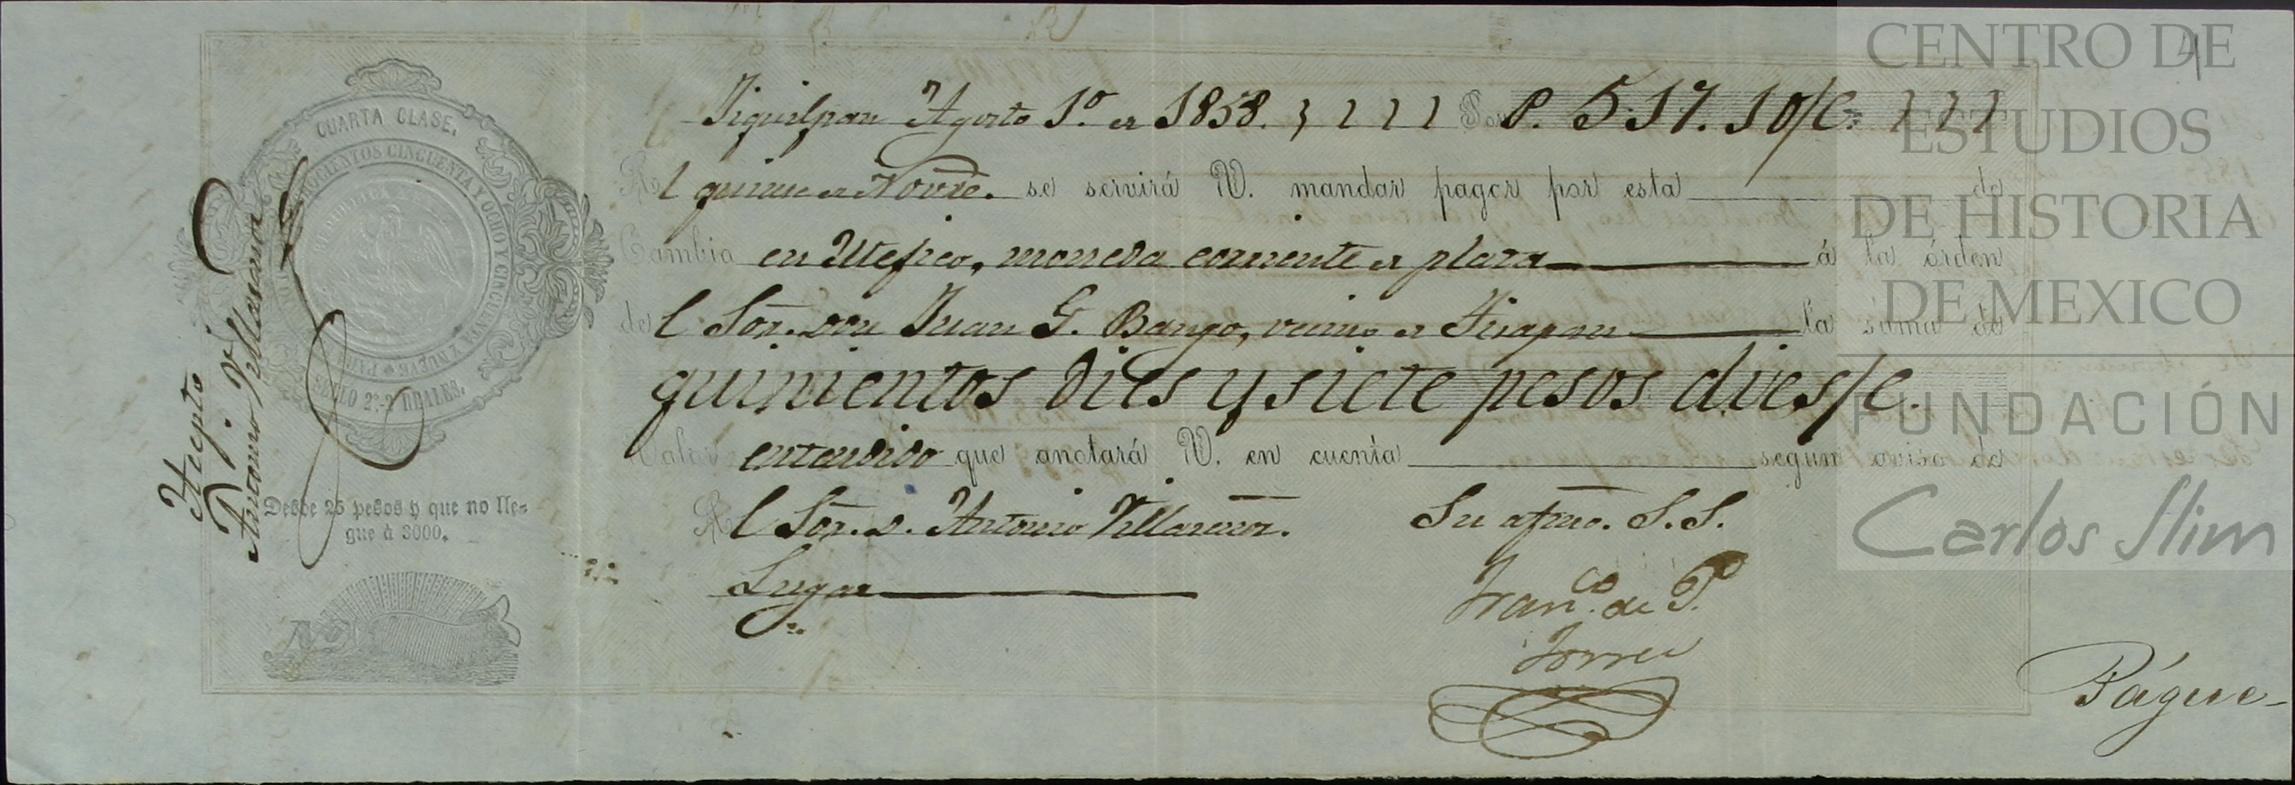 CENTRO DE
ESTUDIOS
DE HISTORIA
DE MEXICO
FUNDACIÓN
Carlos Slim
4
CUARTA CLASE.
OCHOCIENTOS CINCUENTA Y OCHO Y CINCUENTA Y NUEVE
SELLO 2º.-2 REALES.
Desde 25 pesos y que no lle-
gue á 3000.
Acepto
Antonio Villaseñor
Jiquilpan Agosto 1º de 1858. Son P. 517. 10/c.
Al quince de Novre. se servirá V. mandar pagar por esta de
Cambio en moneda corriente de plata á la órden
del Sor. don Juan G. Bango, vecino de la suma de
quinientos dies y siete pesos dies/c.
Valor entendido que anotará V. en cuenta segun aviso de
Al Sor. D. Antonio Villaseñor. Su afmo. S. S.
Lugar
Franco. de P.
Torres
Págue-